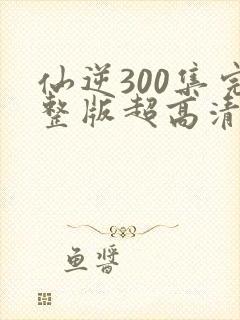 仙逆300集完
整版超高清
鱼酱